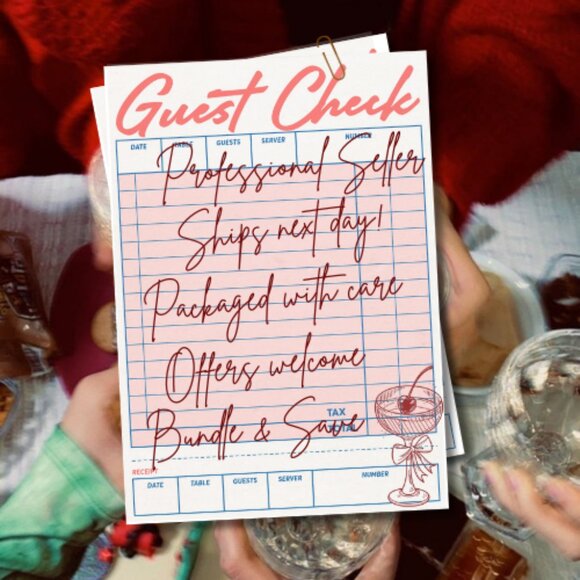 Guest Check
DATE TABLE GUESTS SERVER NUMBER
Professional Seller
Ships next day!
Packaged with care
Offers welcome
TAX
Bundle & Save
RECEIPT
DATE TABLE GUESTS SERVER NUMBER